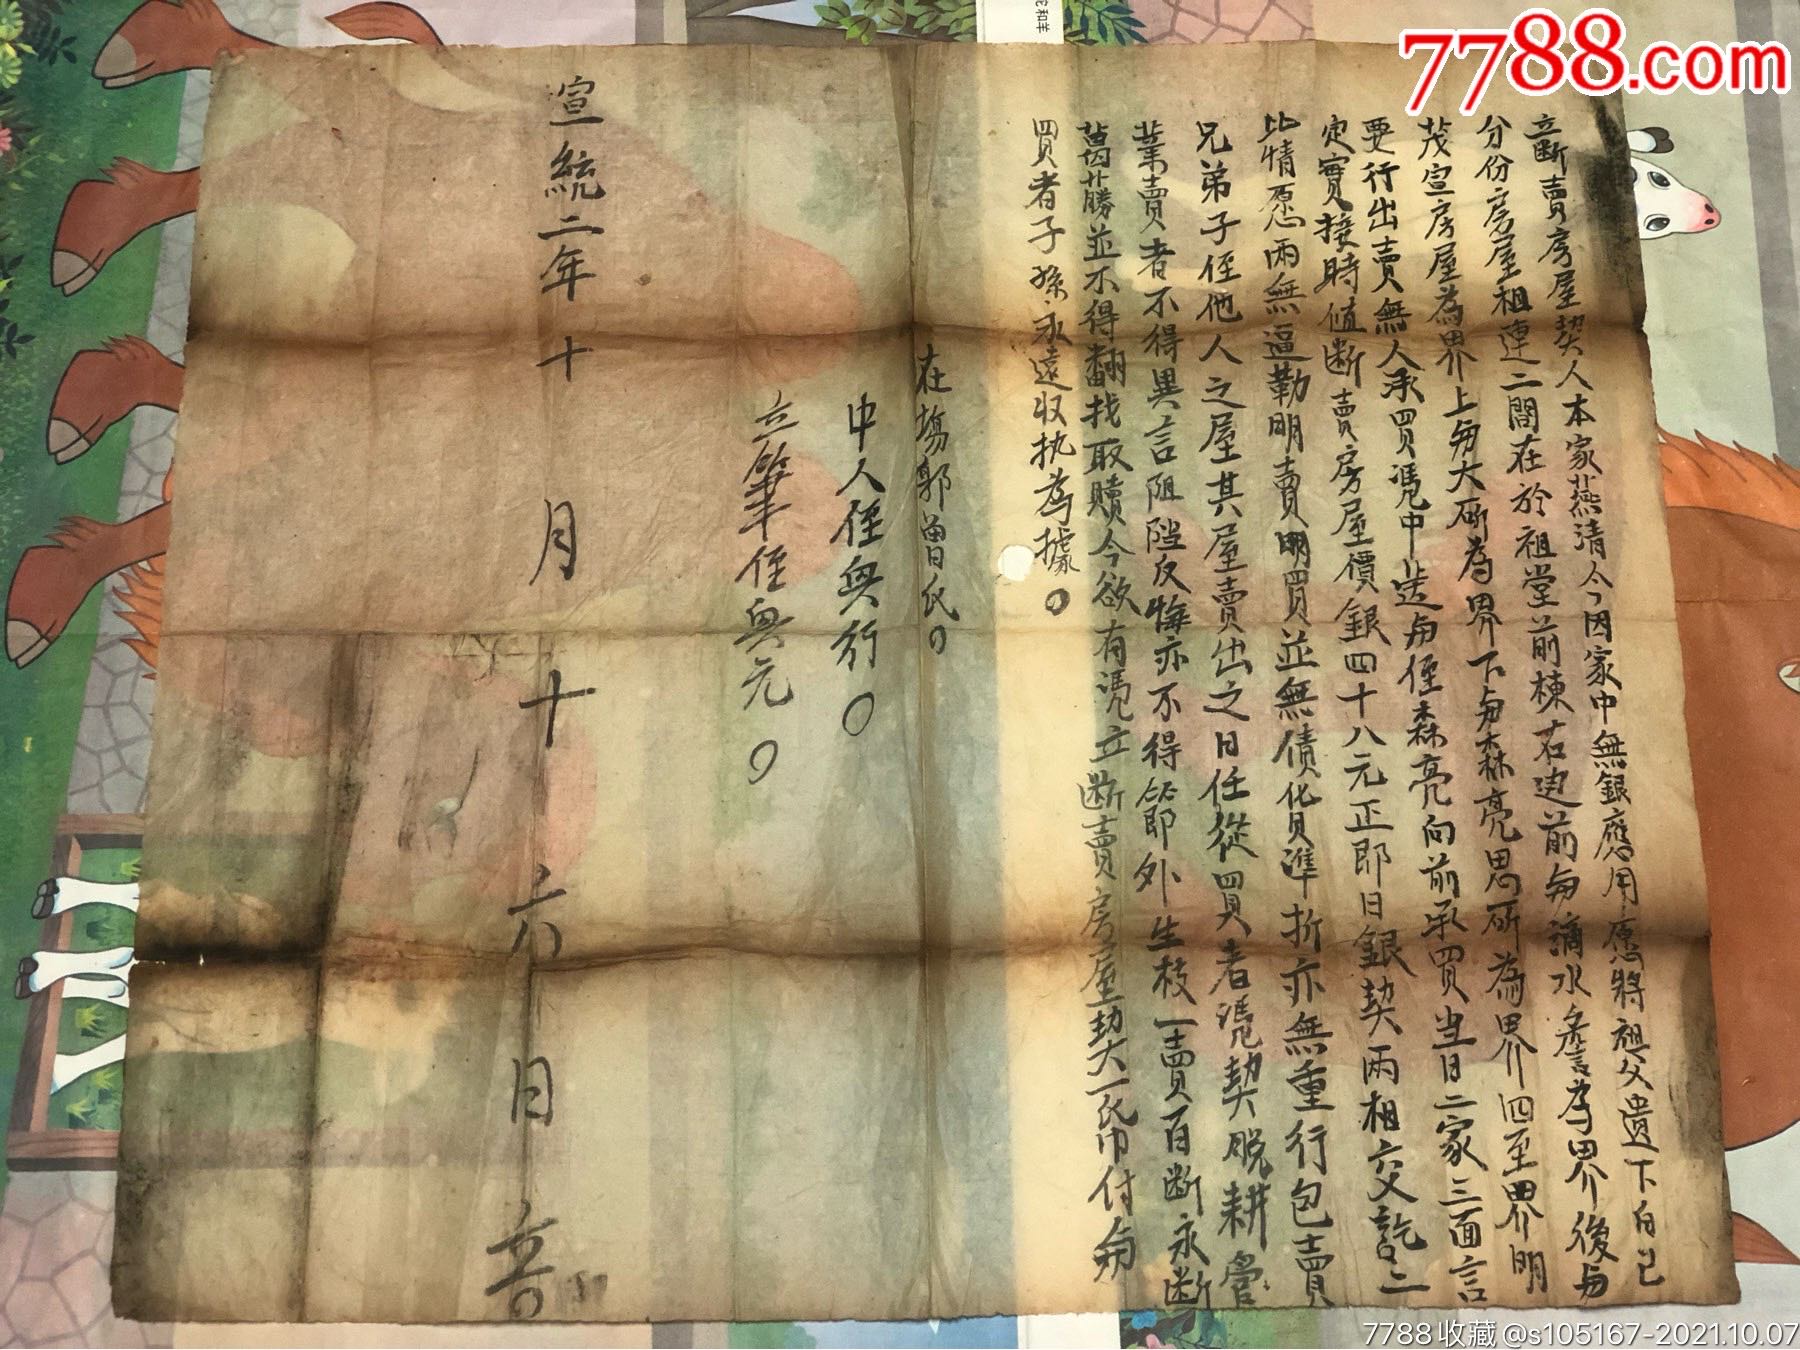 7788.com
立斷賣房屋契人本家燕清今因家中無銀應用愿將祖父遺下自己
分份房屋相連二間在於祖堂前棟右边前每滴水詹為界後每
茂宣房屋為界上每大斫為界下每森亮思斫為界四至界明
要行出賣無人承買凴中送每侄森亮向前承買当日二家三面言
定實接時值断賣房屋價銀四十八元正即日銀契兩相交訖二
比情愿兩無逼勒明賣明買並無債化貝準折亦無重行包賣
兄弟子侄他人之屋其屋賣出之日任從買者凴契脱耕管
業賣者不得異言阻隥反悔亦不得節外生枝一賣百断永断
萬藤並不得翻找取贖今欲有凴立断賣房屋契一帋付每
買者子孫永遠収执為據
在塲郭曾氏
中人侄興行
立筆侄興元
宣統二年十月十六日立
7788收藏@s105167-2021.10.07